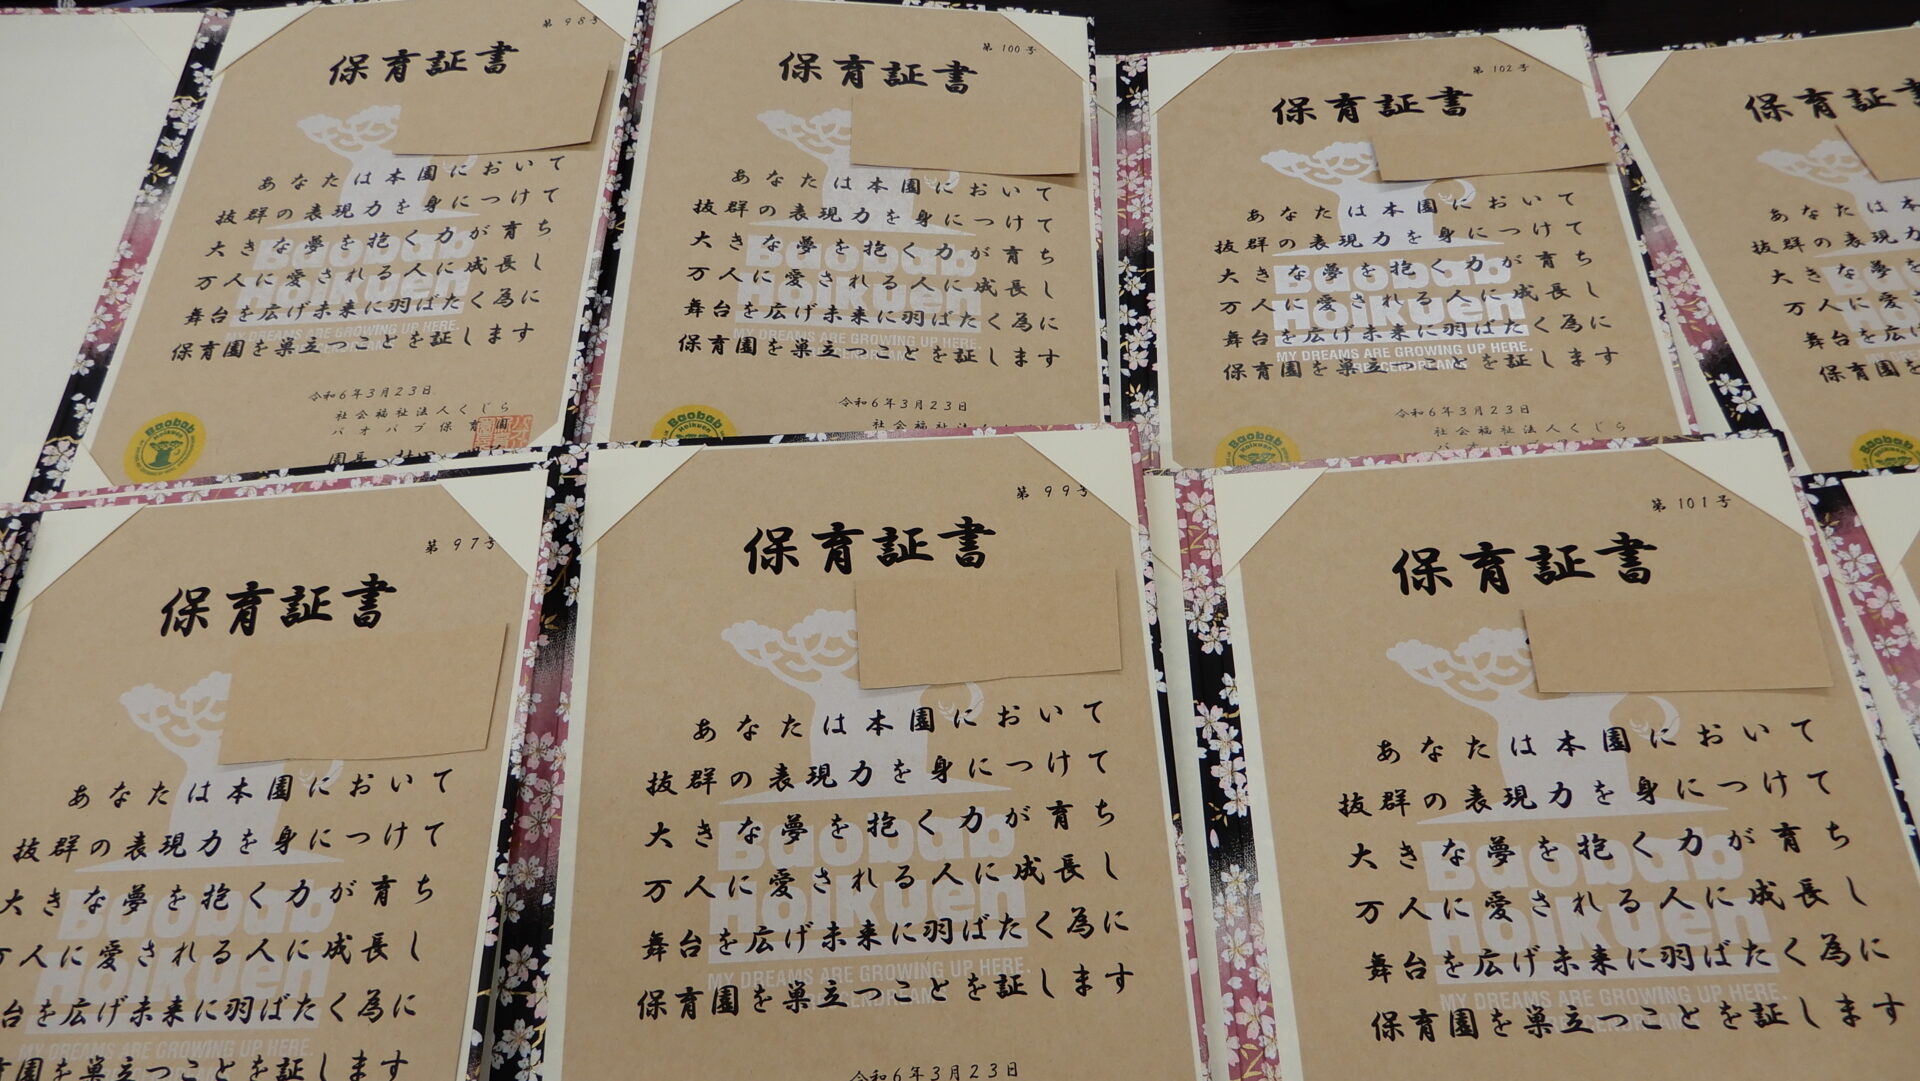 第98号
保育証書
あなたは本園において
抜群の表現力を身につけて
大きな夢を抱く力が育ち
万人に愛される人に成長し
舞台を広げ未来に羽ばたく為に
保育園を巣立つことを証します
Baobab
Hoikuen
MY DREAMS ARE GROWING UP HERE.
令和6年3月23日
社会福祉法人くじら
バオバブ保育園
園長
Baobab
第100号
保育証書
あなたは本園において
抜群の表現力を身につけて
大きな夢を抱く力が育ち
万人に愛される人に成長し
舞台を広げ未来に羽ばたく為に
保育園を巣立つことを証します
Baobab
Hoikuen
MY DREAMS ARE GROWING UP HERE.
令和6年3月23日
社会福祉法人くじら
Baobab
Hoikuen
第102号
保育証書
あなたは本園において
抜群の表現力を身につけて
大きな夢を抱く力が育ち
万人に愛される人に成長し
舞台を広げ未来に羽ばたく為に
保育園を巣立つことを証します
Baobab
Hoikuen
MY DREAMS ARE GROWING UP HERE.
令和6年3月23日
社会福祉法人くじら
Baobab
Hoikuen
保育証書
あなたは本
抜群の表現力
大きな夢を
万人に愛
舞台を広
保育園を
第97号
保育証書
あなたは本園において
抜群の表現力を身につけて
大きな夢を抱く力が育ち
万人に愛される人に成長し
台を広げ未来に羽ばたく為に
園を巣立つことを証します
Baobab
Hoikuen
MY DREAMS ARE GROWING UP HERE.
第99号
保育証書
あなたは本園において
抜群の表現力を身につけて
大きな夢を抱く力が育ち
万人に愛される人に成長し
舞台を広げ未来に羽ばたく為に
保育園を巣立つことを証します
Baobab
Hoikuen
MY DREAMS ARE GROWING UP HERE.
令和6年3月23日
第101号
保育証書
あなたは本園において
抜群の表現力を身につけて
大きな夢を抱く力が育ち
万人に愛される人に成長し
舞台を広げ未来に羽ばたく為に
保育園を巣立つことを証します
Baobab
Hoikuen
MY DREAMS ARE GROWING UP HERE.